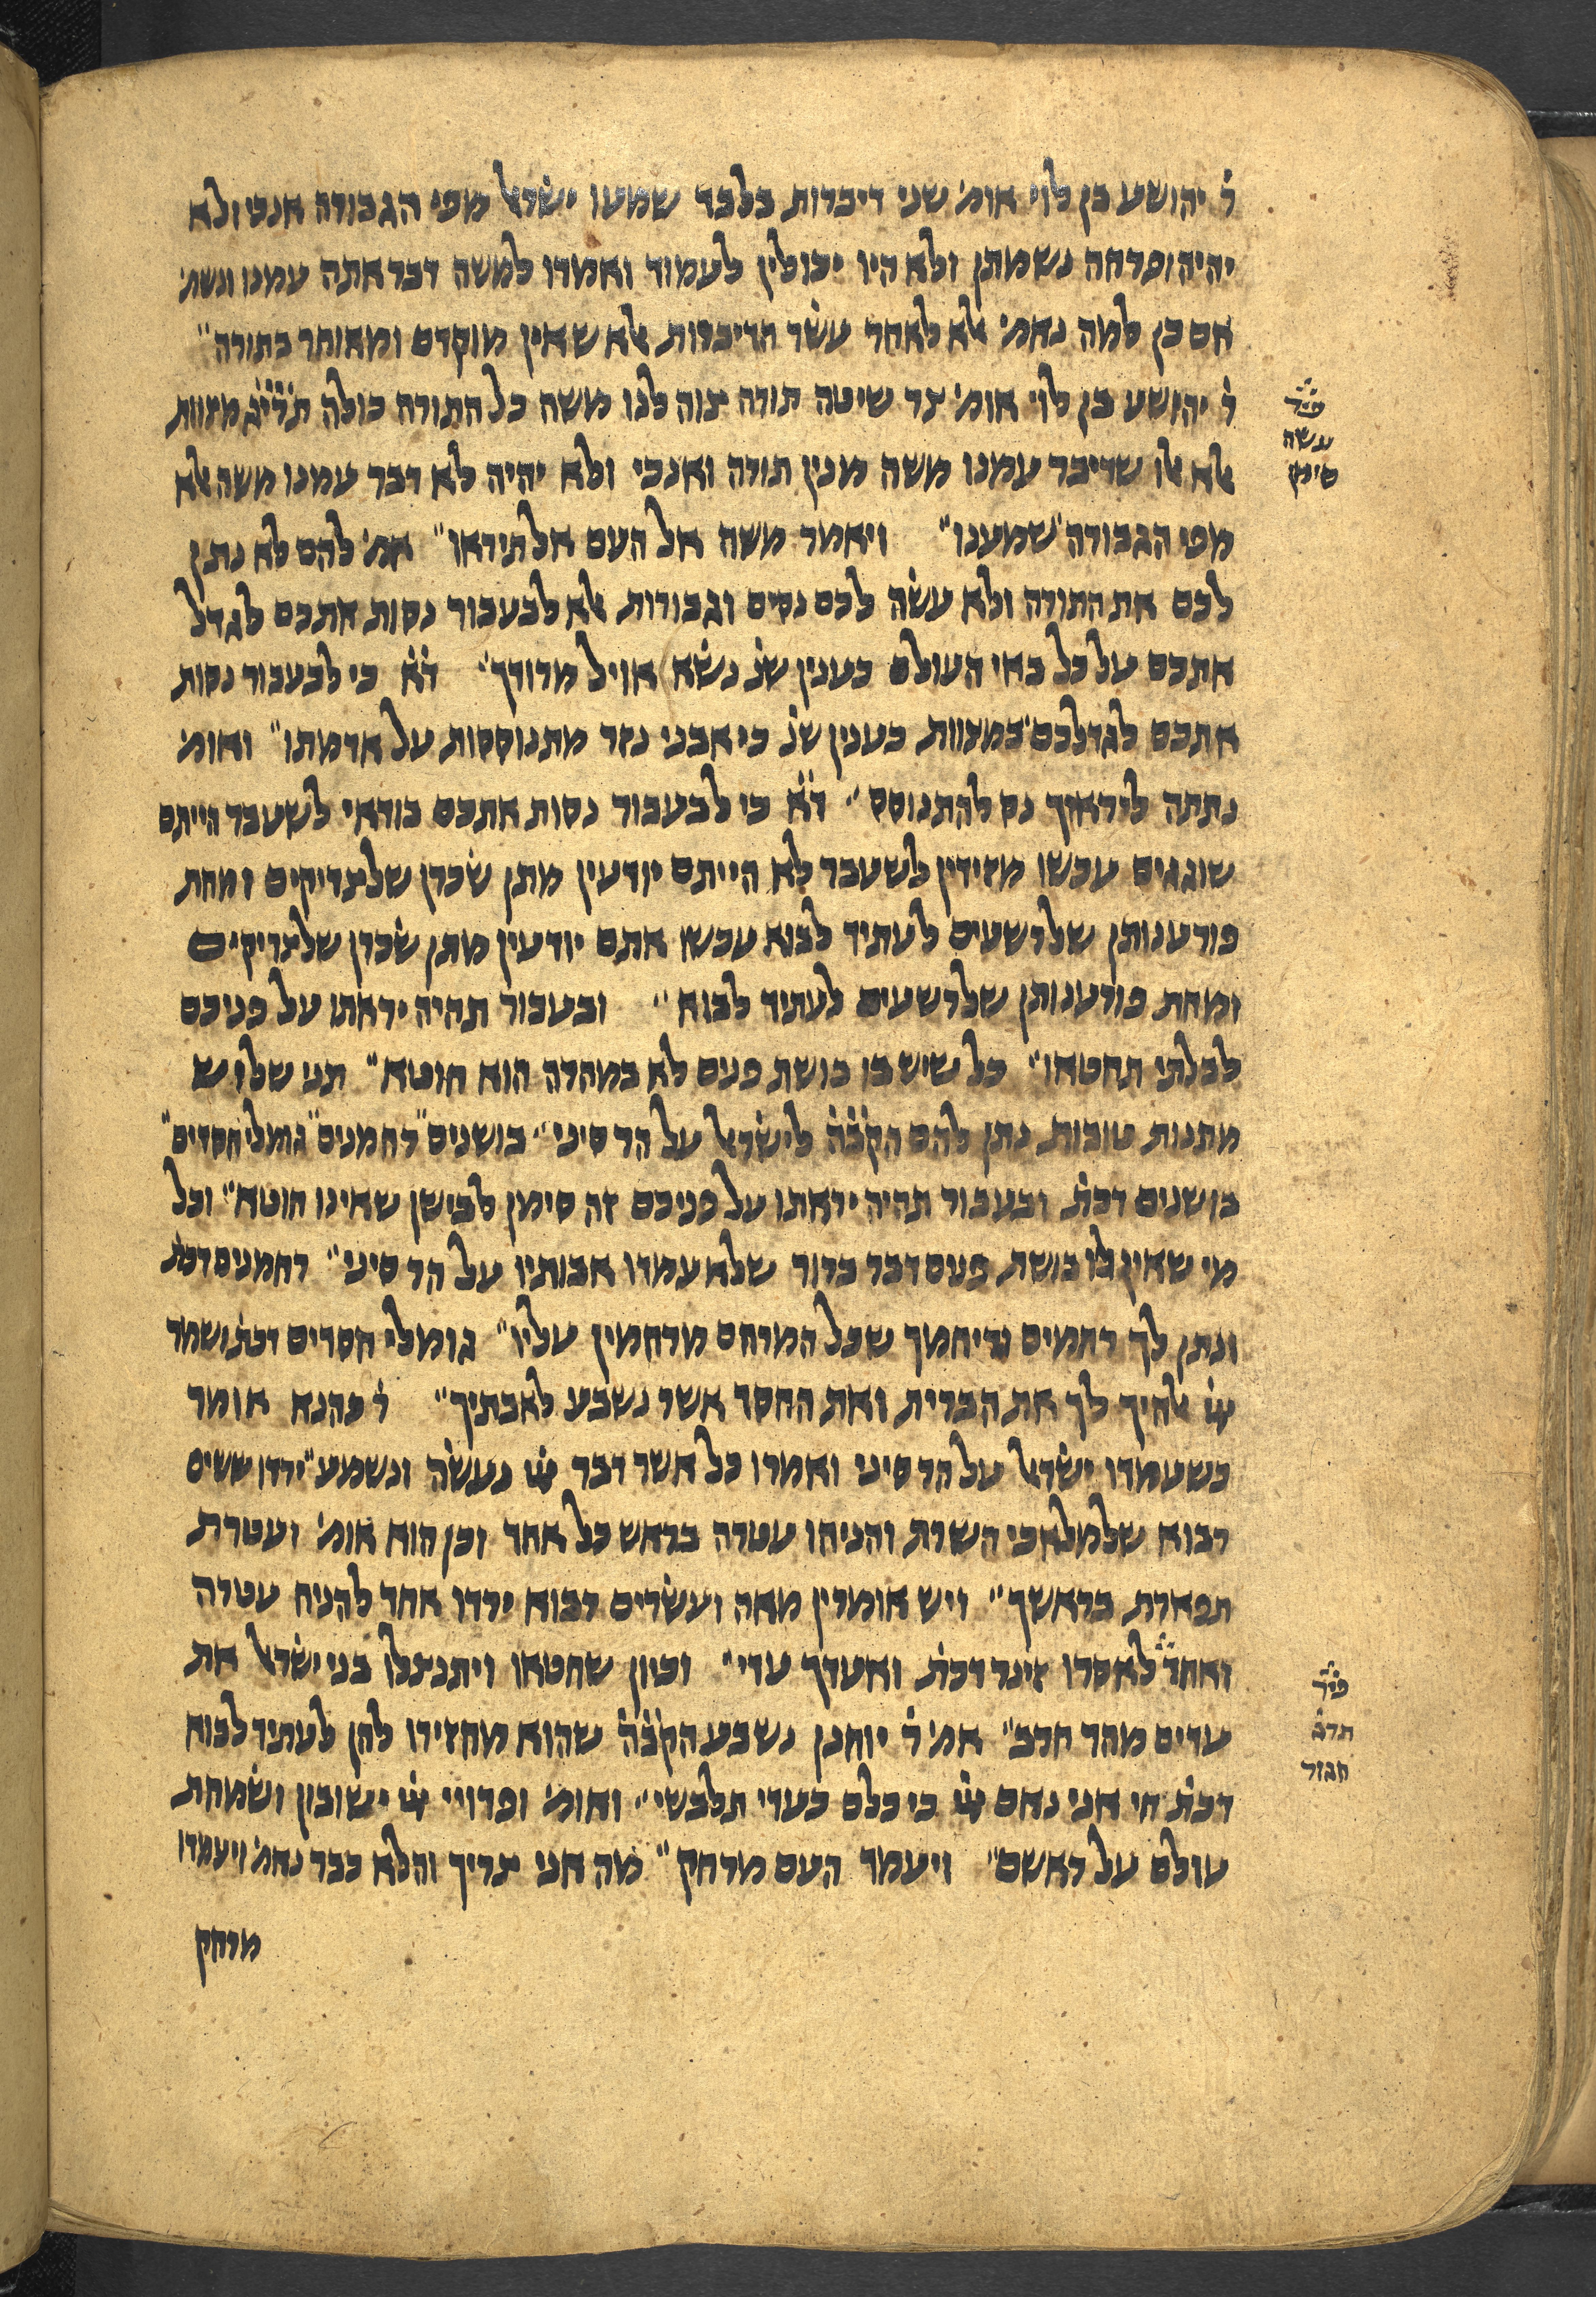 ר׳ יהושע בן לוי אומ׳ שני דיברות בלבד שמעו ישראל מפי הגבורה אנכי ולא
יהיה ופרחה נשמתן ולא היו יכולין לעמוד ואמרו למשה דבר אתה עמנו ונשמ׳
אם כן למה נאמ׳ אלא לאחר עשר הדיברות אלא שאין מוקדם ומאוחר בתורה״
ר׳ יהושע בן לוי אומ׳ צד שיטה תורה צוה לנו משה כל התורה כולה תרי״ג מצוות
אלא אלו שדיבר עמנו משה מנין תורה ואנכי ולא יהיה לא דבר עמנו משה אלא
מפי הגבורה שמענו״ ויאמר משה אל העם אל תיראו״ אמ׳ להם לא נתן
לכם את התורה ולא עשה לכם נסים וגבורות אלא לבעבור נסות אתכם לגדל
אתכם על כל באי העולם כענין שנ׳ נשא אויל מרודך״ ד״א כי לבעבור נסות
אתכם לגדלכם במצוות כענין שנ׳ כי אבני נזר מתנוססות על אדמתו״ ואומ׳
נתתה ליראיך נס להתנוסס״ ד״א כי לבעבור נסות אתכם בודאי לשעבר הייתם
שוגגים עכשו מזידין לשעבר לא הייתם יודעין מתן שכרן שלצדיקים ומחת
פורענותן שלרשעים לעתיד לבוא עכשו אתם יודעין מתן שכרן שלצדיקים
ומחת פורענותן שלרשעים לעתיד לבוא״ ובעבור תהיה יראתו על פניכם
לבלתי תחטאו״ כל שיש בו בושת פנים לא במהרה הוא חוטא״ תני שלוש
מתנות טובות נתן להם הקב״ה לישראל על הר סיני״ בושנים״ רחמנים״ גומלי חסדים״
בושנים דכת׳ ובעבור תהיה יראתו על פניכם זה סימן לביישן שאינו חוטא״ וכל
מי שאין לו בושת פנים דבר ברור שלא עמדו אבותיו על הר סיני״ רחמנים דכת׳
ונתן לך רחמים וריחמך שכל המרחם מרחמין עליו״ גומלי חסדים דכת׳ ושמר
ייי אלהיך לך את הברית ואת החסד אשר נשבע לאבתיך״ ר׳ כהנא אומר
כשעמדו ישראל על הר סיני ואמרו כל אשר דבר ייי נעשה ונשמע״ ירדו ששים
רבוא שלמלאכי השרת והניחו עטרה בראש כל אחד וכן הוא אומ׳ ועטרת
תפארת בראשך״ ויש אומרין מאה ועשרים רבוא ירדו אחד להניח עטרה
ואחד לאסרו זינר דכת׳ ואעדך עדי״ וכיון שחטאו ויתנצלו בני ישראל את
עדים מהר חרב״ אמ׳ ר׳ יוחנן נשבע הקב״ה שהוא מחזירו להן לעתיד לבוא
דכת׳ חי אני נאם ייי כי כלם כעדי תלבשי״ ואומ׳ ופדויי ייי ישובון ושמחת
עולם על ראשם״ ויעמד העם מרחק״ מה אני צריך והלא כבר נאמ׳ ויעמדו
מרחק
עשה
סימן